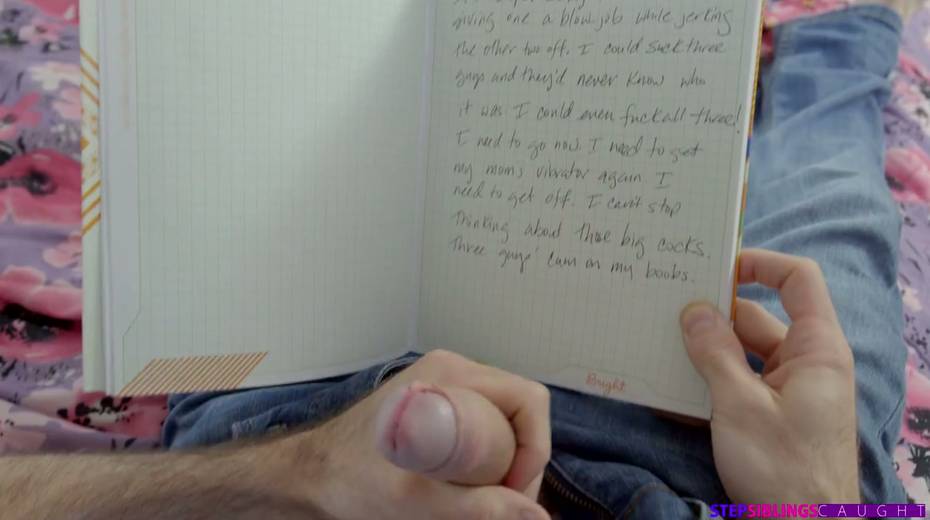 giving one a blow job while jerking
the other two off. I could suck three
guys and they'd never know who
it was. I could even fuck all three!
I need to go now. I need to get
my moms vibrator again. I
need to get off. I can't stop
thinking about those big cocks.
Three guys' cum on my boobs.
Bright
STEPSIBLINGSCAUGHT